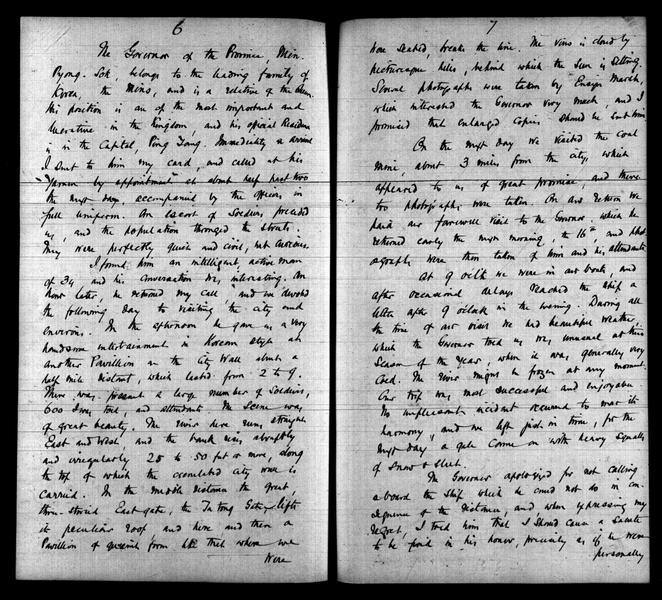 6
The Governor of the Province, Min
Pyong Sok, belongs to the leading family of
Korea, the Mins, and is a relative of the Queen.
His position is one of the most important and
lucrative in the Kingdom, and his official Residence
is in the Capital, Ping Yang. Immediately on arrival
I sent to him my card, and called at his
"Yamen by appointment" at about half past two
the next day, accompanied by the officers in
full uniform. An escort of Soldiers, preceded
us, and the population thronged the streets.
They were perfectly quiet and civil, but curious.
I found him an intelligent, active man
of 39 and his conversation was interesting. An
hour later, he returned my call, and we devoted
the following day to visiting the city and
environs. In the afternoon he gave us a very
handsome entertainment in Korean style at
another Pavillion on the City Wall about a
half mile distant, which lasted from 2 to 9.
There was present a large number of Soldiers,
600 I was told, and attendants. The scene was
of great beauty. The river here runs straight
East and West and the bank rises abruptly
and irregularly 25 to 50 feet or more, along
the top of which the crenulated city wall is
carried. In the middle distance the great
three storied East gate, the Ta Tong Gate, lifts
its peculiar roof and here and there a
Pavillion of general form like that where we
were
7
were seated, breaks the line. The view is closed by
picturesque hills, behind which the sun is setting.
Several photographs were taken by Ensign Marsh,
which interested the Governor very much, and I
promised that enlarged copies should be sent him.
On the next day we visited the coal
mine, about 3 miles from the city, which
appeared to us of great promise, and there
too photographs were taken. On our return we
paid our farewell visit to the Governor, which he
returned early the next morning, the 16th, and phot-
ographs were then taken of him and his attendants.
At 9 o'clk we were in our boat, and
after occasional delays reached the ship a
little after 9 o'clock in the evening. During all
the time of our visit we had beautiful weather,
which the Governor told us was unusual at this
season of the Year, when it was generally very
cold. The river might be frozen at any moment.
Our trip was most successful and enjoyable.
No unpleasant incident occurred to mar its
harmony, and we left just in time, for the
next day a gale came on with heavy squalls
of snow & sleet.
The Governor apologized for not calling
aboard the ship which he could not do in con-
sequence of the distance, and when expressing my
regret, I told him that I should cause a salute
to be fired in his honor, precisely as if he were
personally